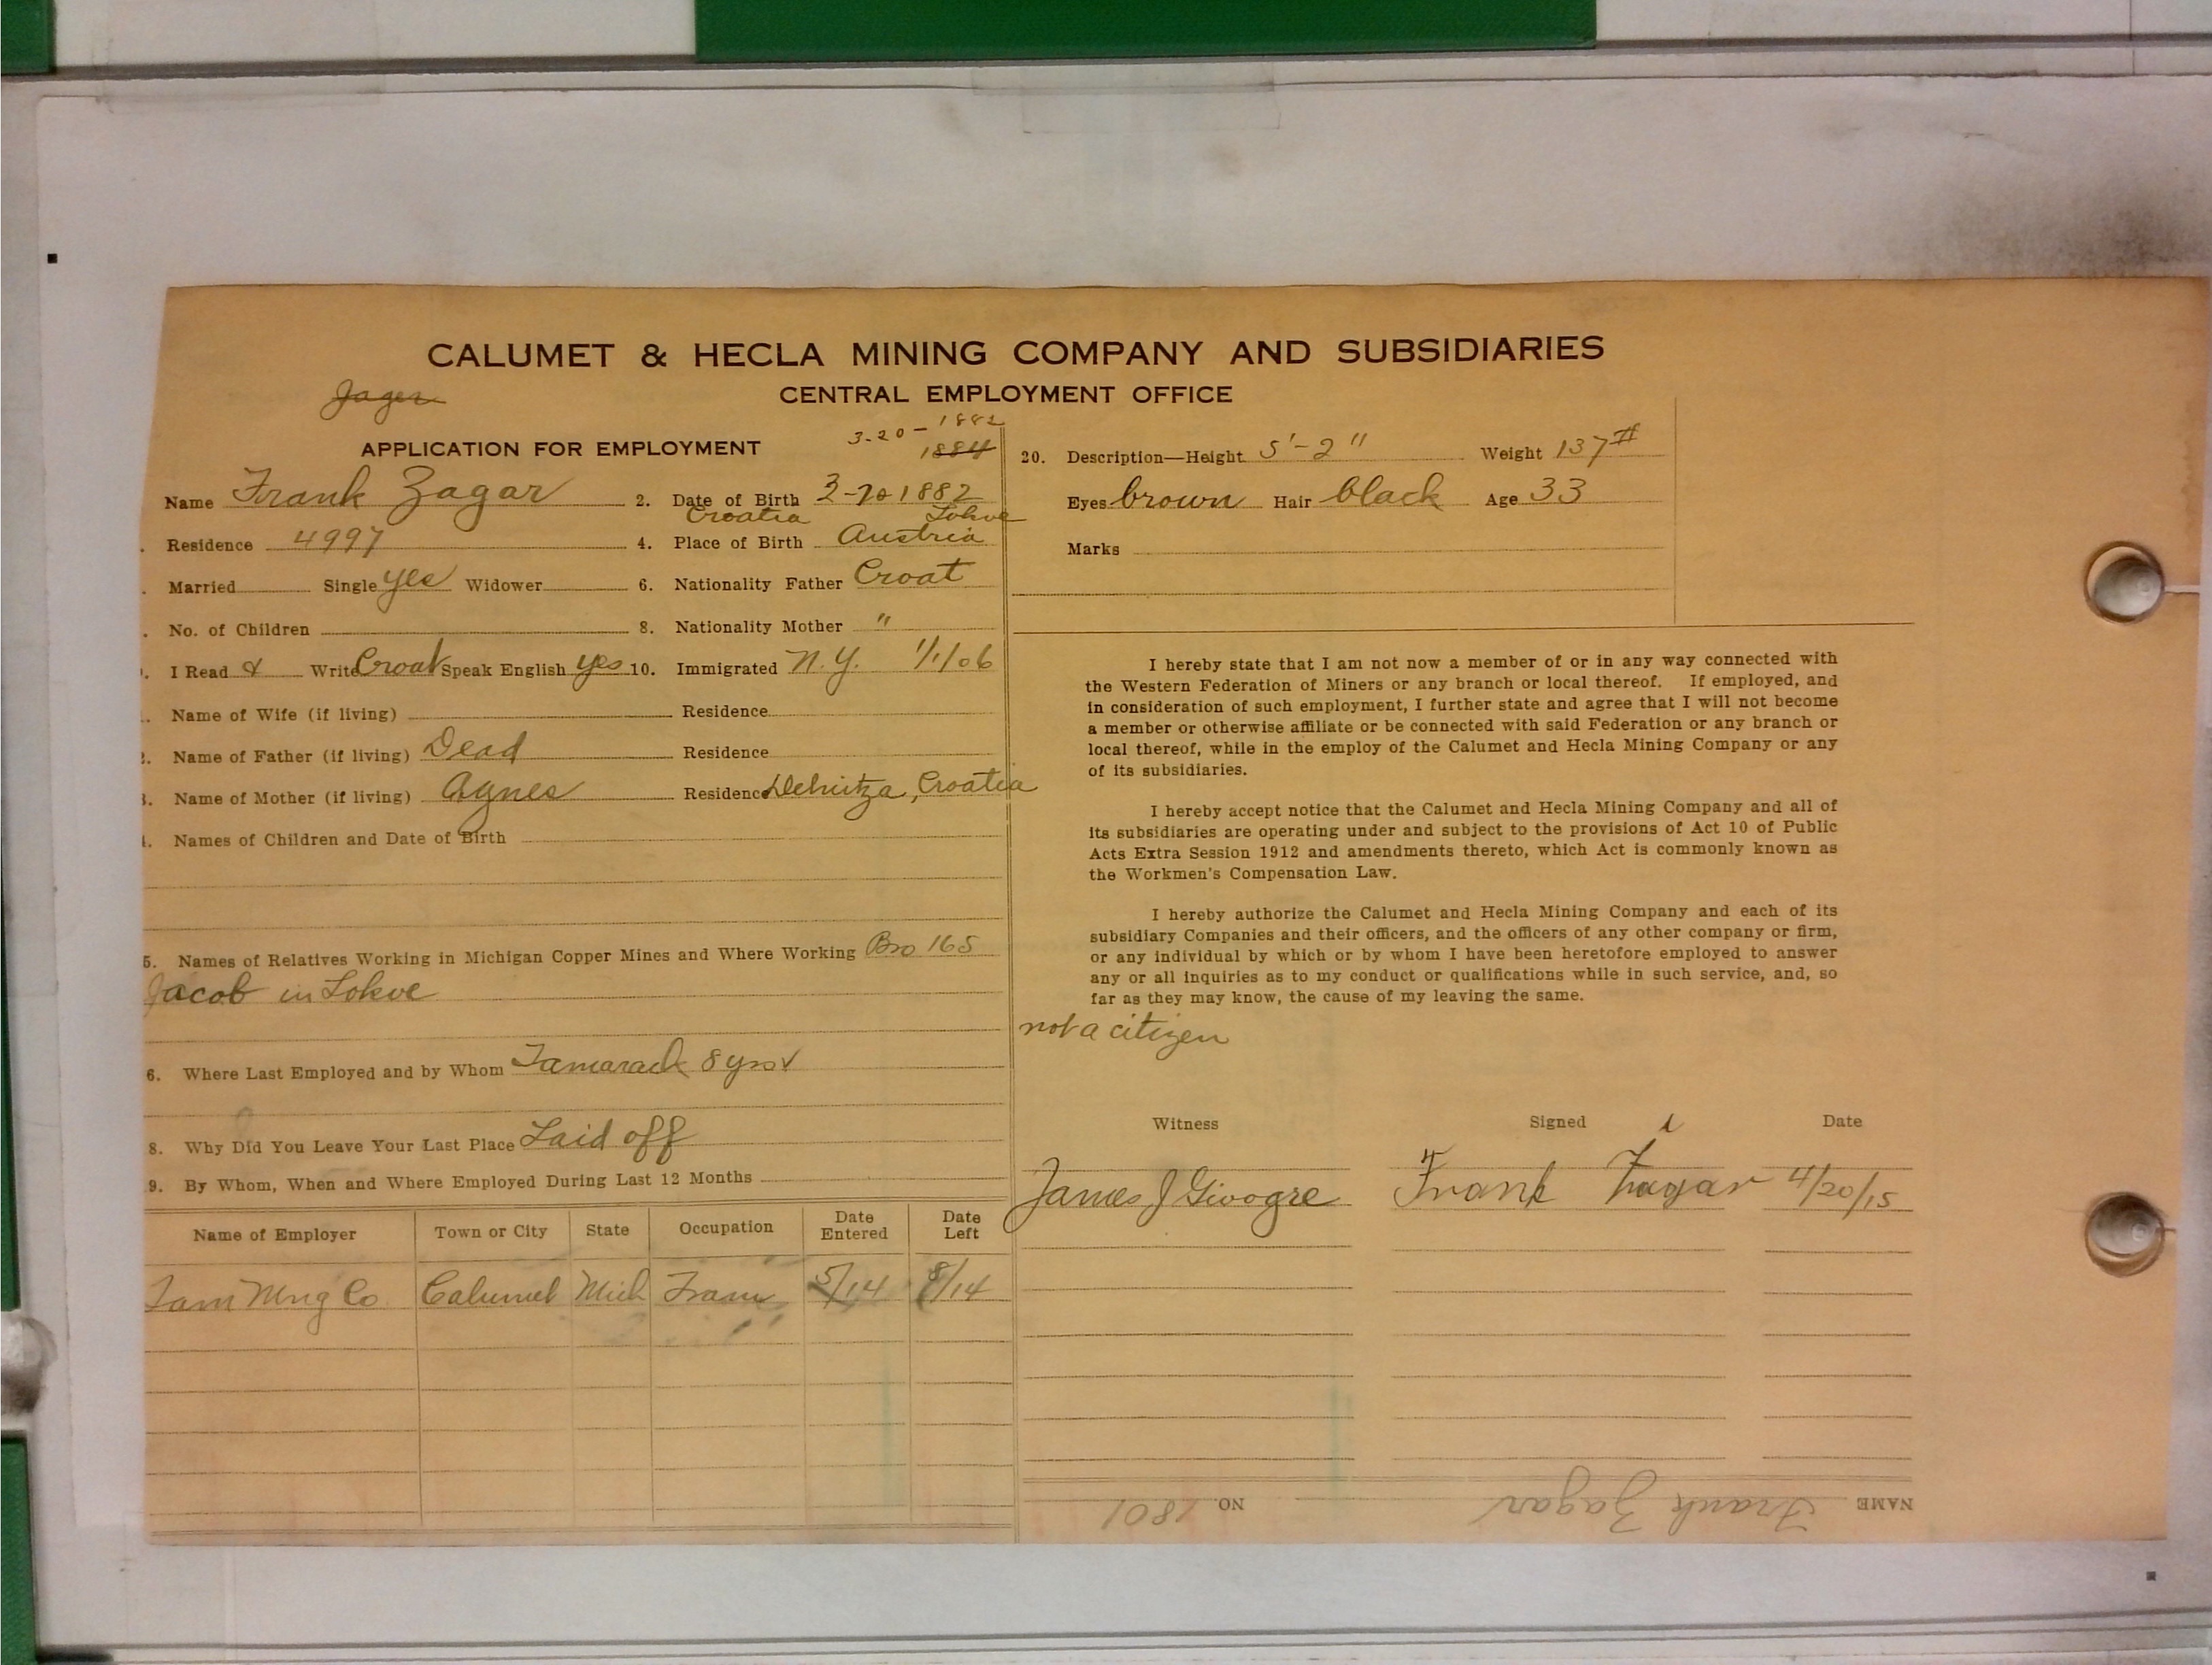 CALUMET & HECLA MINING COMPANY AND SUBSIDIARIES
CENTRAL EMPLOYMENT OFFICE
Jager
APPLICATION FOR EMPLOYMENT
3-20-1882
1884
Name Frank Zagar 2. Date of Birth 3-20 1882
Croatia Lokve
Residence 4997 4. Place of Birth Austria
Married Single yes Widower 6. Nationality Father Croat
No. of Children 8. Nationality Mother "
I Read & Write Croat Speak English yes 10. Immigrated N.Y. 1/1/06
Name of Wife (if living) Residence
Name of Father (if living) Dead Residence
Name of Mother (if living) Agnes Residence Croatia
Names of Children and Date of Birth
5. Names of Relatives Working in Michigan Copper Mines and Where Working Bro 165
Jacob in Lokve
6. Where Last Employed and by Whom Tamarack 8 yrs
8. Why Did You Leave Your Last Place Laid off
9. By Whom, When and Where Employed During Last 12 Months
Name of Employer Town or City State Occupation Date Entered Date Left
Tam Mng Co Calumet Mich Tram 5/14 8/14
20. Description—Height 5'-2" Weight 137#
Eyes brown Hair black Age 33
Marks
I hereby state that I am not now a member of or in any way connected with
the Western Federation of Miners or any branch or local thereof. If employed, and
in consideration of such employment, I further state and agree that I will not become
a member or otherwise affiliate or be connected with said Federation or any branch or
local thereof, while in the employ of the Calumet and Hecla Mining Company or any
of its subsidiaries.
I hereby accept notice that the Calumet and Hecla Mining Company and all of
its subsidiaries are operating under and subject to the provisions of Act 10 of Public
Acts Extra Session 1912 and amendments thereto, which Act is commonly known as
the Workmen's Compensation Law.
I hereby authorize the Calumet and Hecla Mining Company and each of its
subsidiary Companies and their officers, and the officers of any other company or firm,
or any individual by which or by whom I have been heretofore employed to answer
any or all inquiries as to my conduct or qualifications while in such service, and, so
far as they may know, the cause of my leaving the same.
not a citizen
Witness Signed Date
James J Givogre Frank Zagar 4/20/15
NAME Frank Zagar NO. 1801